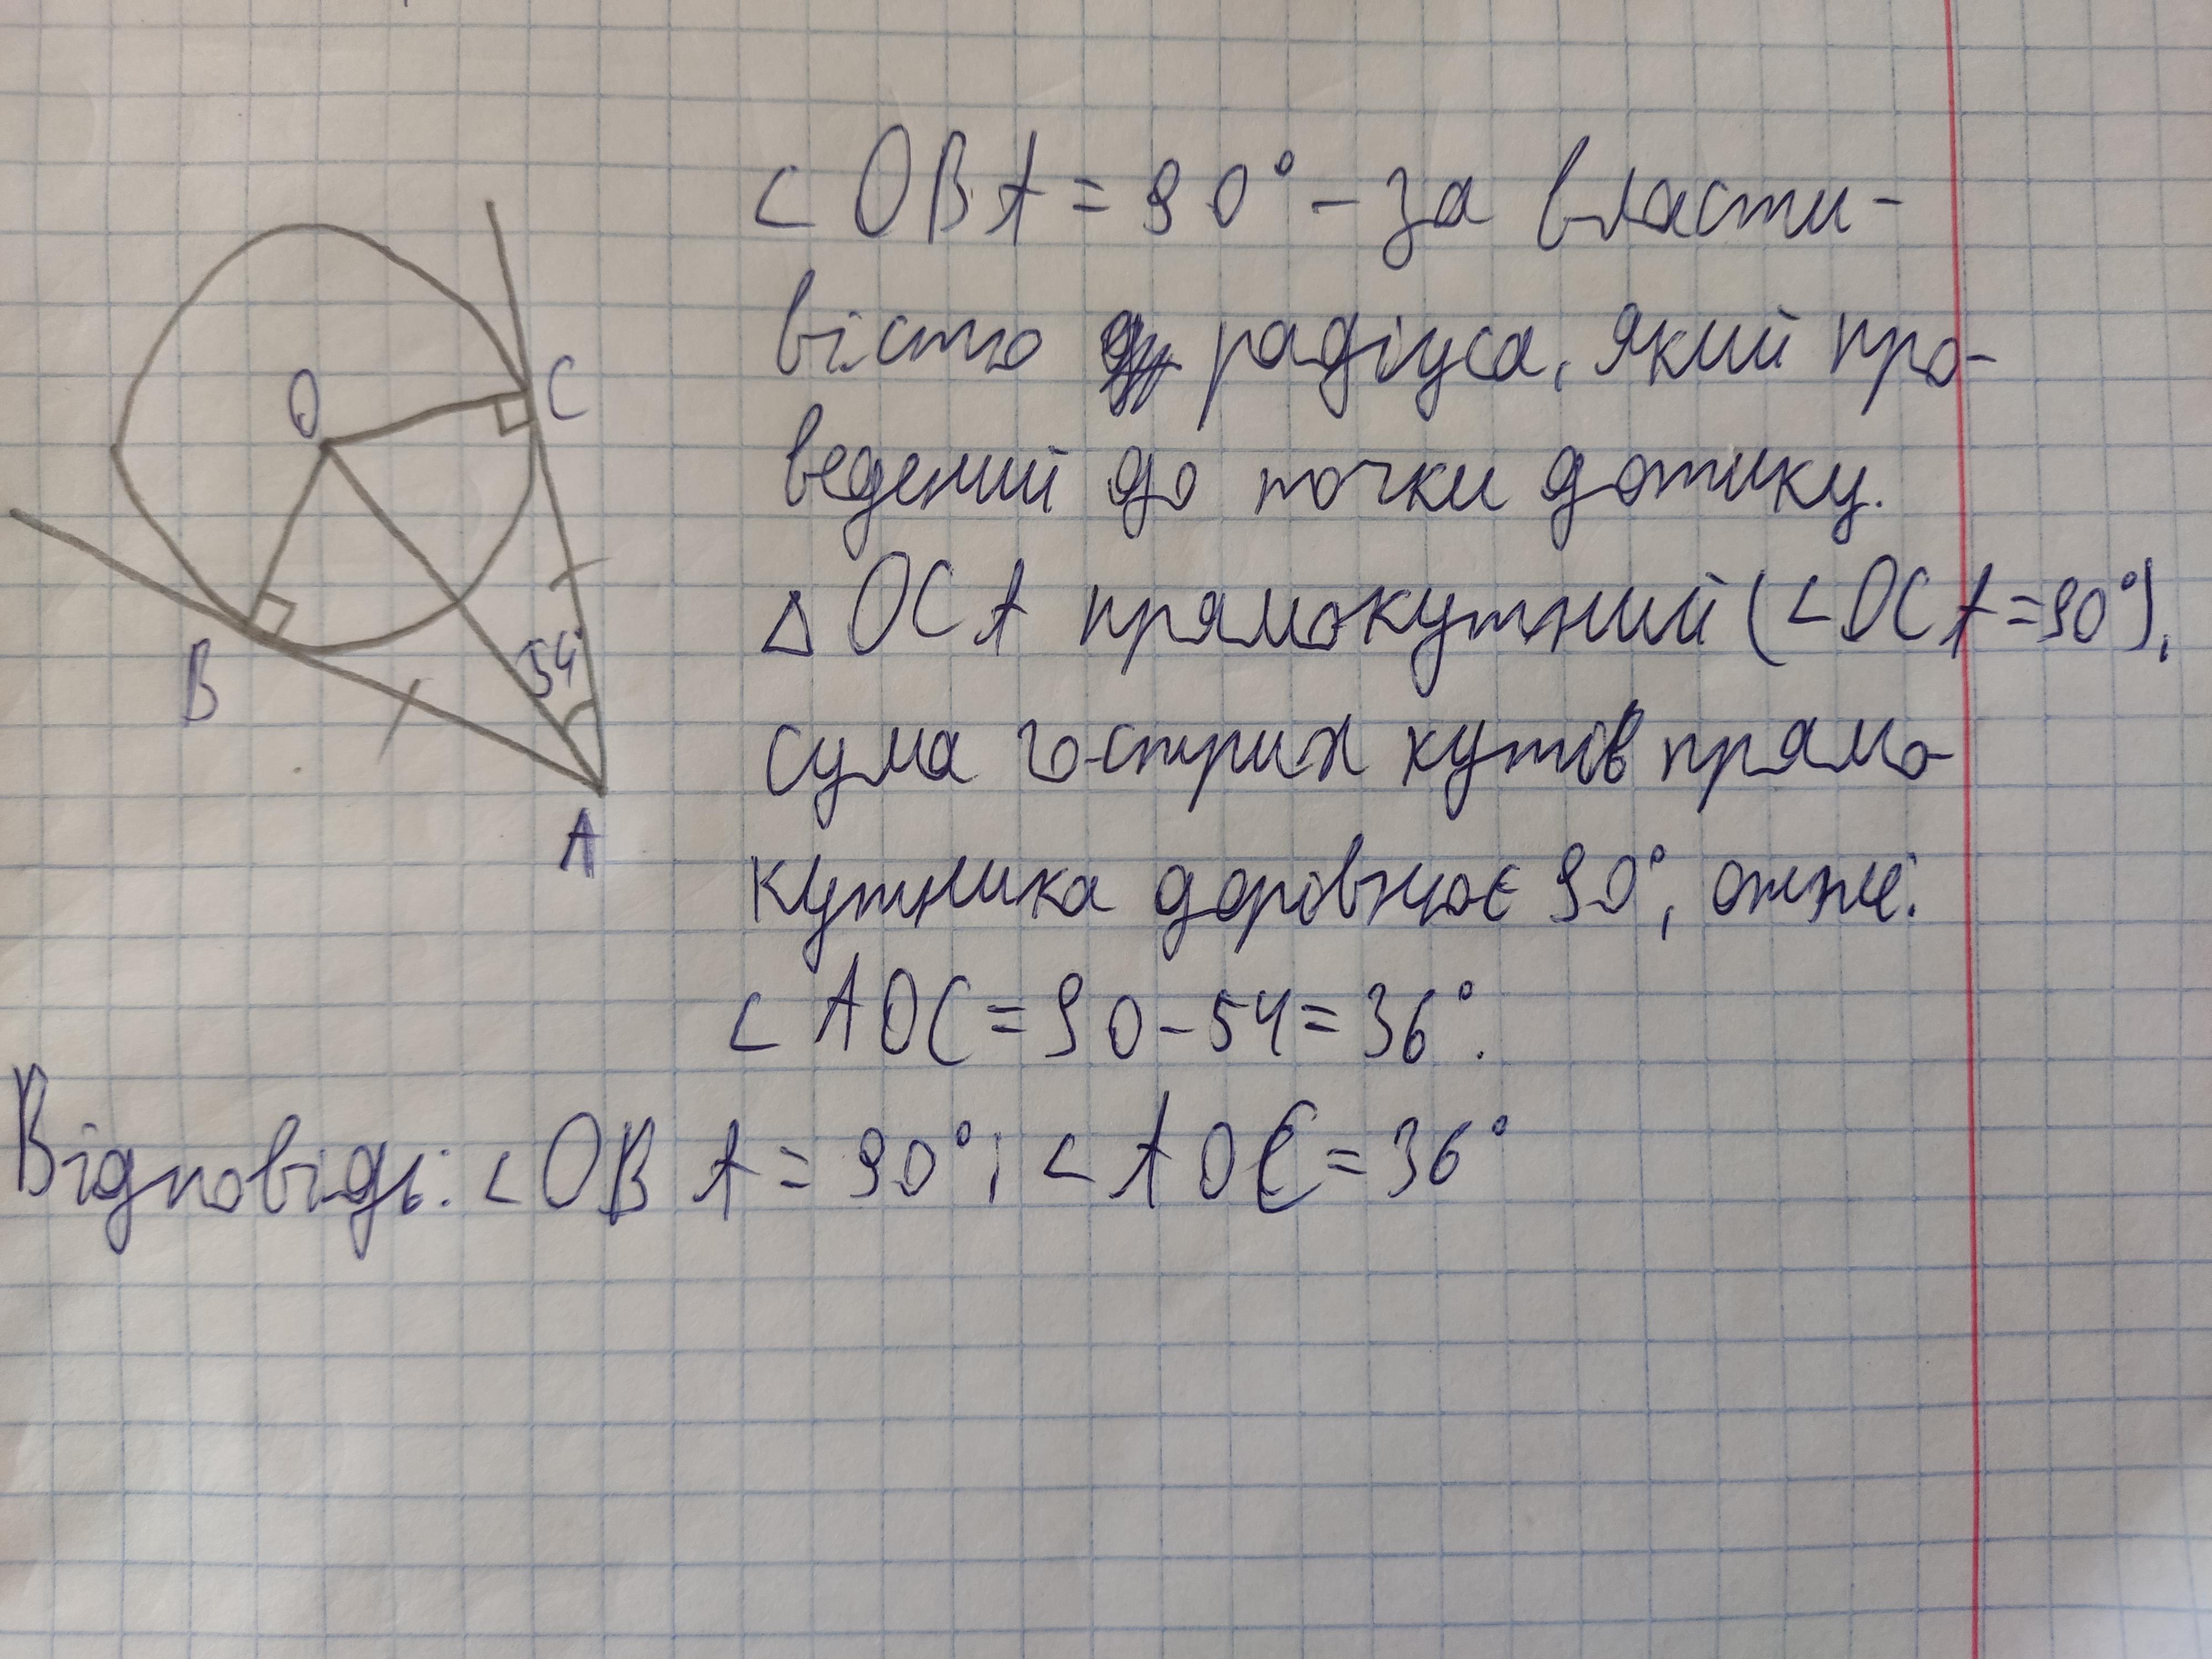 ∠OBA = 90° - за власти-
вістю радіуса, який про-
ведений до точки дотику.
△OCA прямокутний (∠OCA = 90°),
сума гострих кутів прямо
кутника дорівнює 90°, отже:
∠AOC = 90 - 54 = 36°.
Відповідь: ∠OBA = 90°; ∠AOC = 36°
O
C
B
54°
A